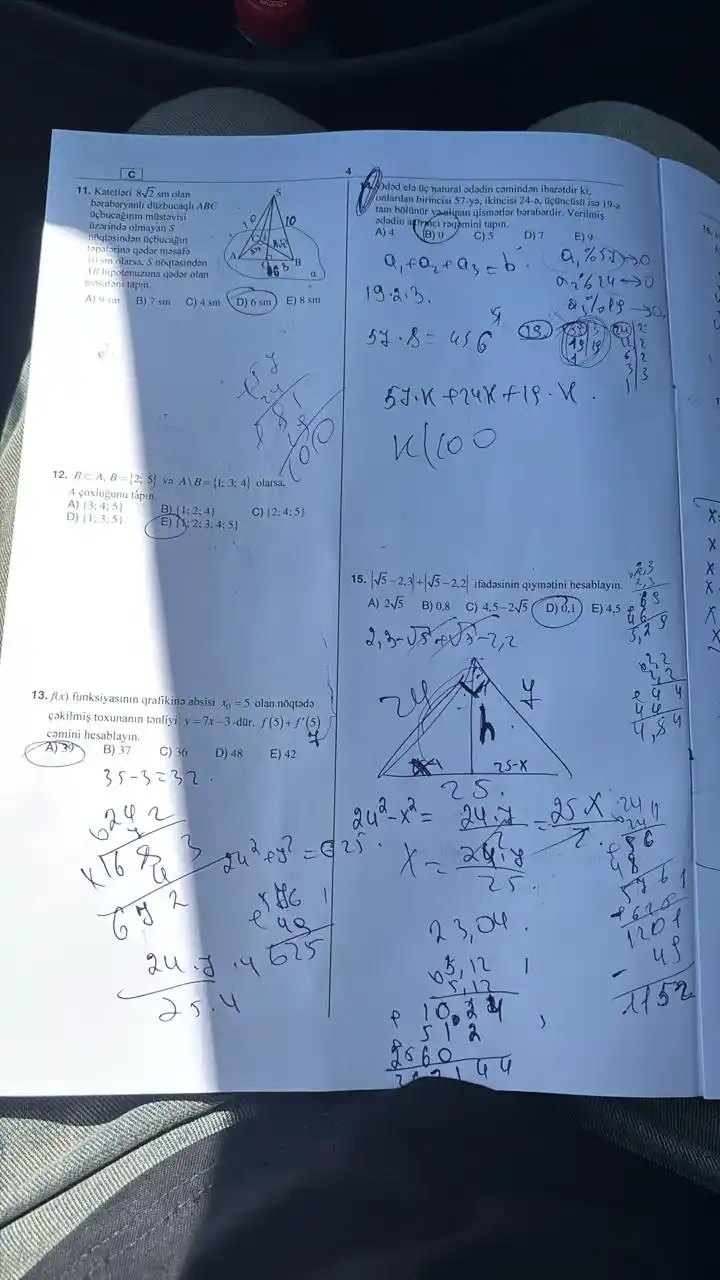 C
4
11. Katetləri 8√2 sm olan
bərabəryanlı düzbucaqlı ABC
üçbucağının müstəvisi
üzərində olmayan S
nöqtəsindən üçbucağın
təpələrinə qədər məsafə
10 sm olarsa, S nöqtəsindən
AB hipotenuzuna qədər olan
məsafəni tapın.
A) 9 sm B) 7 sm C) 4 sm D) 6 sm E) 8 sm
S
10
10
A
B
α
12. B⊂A, B={2; 5} və A\B={1; 3; 4} olarsa,
A çoxluğunu tapın.
A) {3; 4; 5} B) {1; 2; 4} C) {2; 4; 5}
D) {1; 3; 5} E) {1; 2; 3; 4; 5}
13. f(x) funksiyasının qrafikinə absisi x₀ = 5 olan nöqtədə
çəkilmiş toxunanın tənliyi y = 7x − 3-dür. f(5) + f′(5)
cəmini hesablayın.
7
A) 39 B) 37 C) 36 D) 48 E) 42
35-3=32.
24²+7²=625.
672
24.7.4
25.4
625
Ədəd elə üç natural ədədin cəmindən ibarətdir ki,
onlardan birincisi 57-yə, ikincisi 24-ə, üçüncüsü isə 19-a
tam bölünür və alınan qismətlər bərabərdir. Verilmiş
ədədin axırıncı rəqəmini tapın.
A) 4 B) 0 C) 5 D) 7 E) 9
a₁+a₂+a₃=b
a₁%57→0
a₂%24→0
a₃%19→0.
19.2.3.
57.8=456
19.
57.K+24K+19.K.
K(100
15. |√5−2,3|+|√5−2,2| ifadəsinin qiymətini hesablayın.
A) 2√5 B) 0,8 C) 4,5−2√5 D) 0,1 E) 4,5
2,3-√5+√5-2,2
2,3
2,3
69
46
5,29
2,2
2,2
44
44
4,84
24
7
h
25-x
25.
24²-x²=
24.7
25
x=
24.7
25.
23,04.
5,12
5,12
10 24
512
2560
24
24
96
48
576
625
1201
49
1152